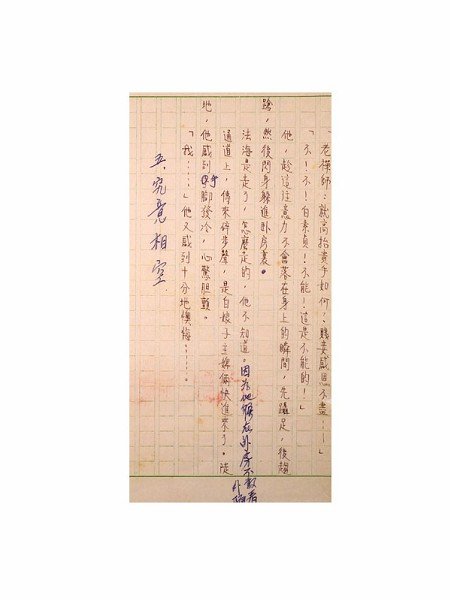 「老禪師：就高抬貴手如何，賤妾感恩不盡……」
「不！不！白素貞！不能！這是不能的！」
他，趁這注意力不會落在身上的瞬間，先躡足，後趨
蹌，然後閃身躲進卧房裏。
法海是走了，怎麼走的，他不知道。因為他躲在卧房不敢看
通道上，傳來碎步聲，是白娘子主婢倆快進來了。陡
地，他感到手腳發冷，心驚胆顫。
「我……」他又感到十分地懊悔……。
五、究竟相空